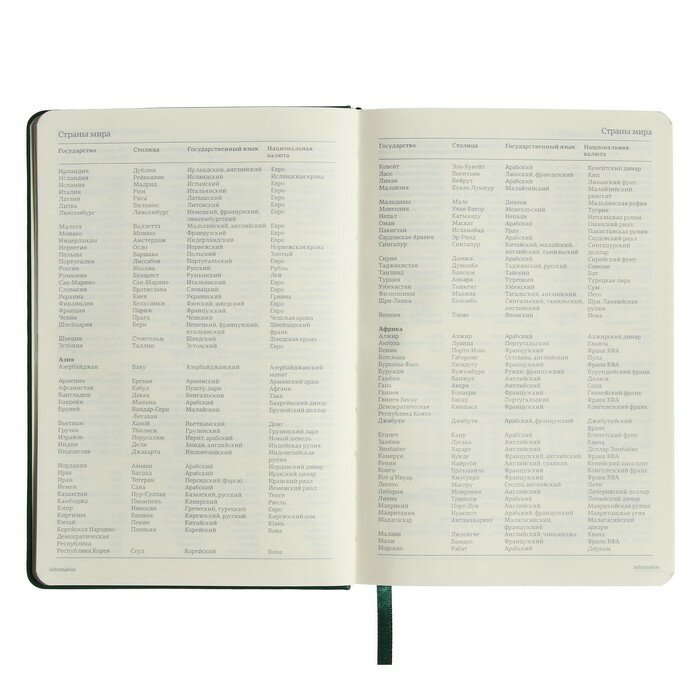 Страны мира
Государство Столица Государственный язык Национальная
валюта
Ирландия Дублин Ирландский, английский Евро
Исландия Рейкьявик Исландский Исландская крона
Испания Мадрид Испанский Евро
Италия Рим Итальянский Евро
Латвия Рига Латышский Евро
Литва Вильнюс Литовский Евро
Люксембург Люксембург Немецкий, французский, Евро
люксембургский
Мальта Валлетта Мальтийский, английский Евро
Монако Монако Французский Евро
Нидерланды Амстердам Нидерландский Евро
Норвегия Осло Норвежский Норвежская крона
Польша Варшава Польский Злотый
Португалия Лиссабон Португальский Евро
Россия Москва Русский Рубль
Румыния Бухарест Румынский Лей
Сан-Марино Сан-Марино Итальянский Евро
Словакия Братислава Словацкий Евро
Украина Киев Украинский Гривна
Финляндия Хельсинки Финский, шведский Евро
Франция Париж Французский Евро
Чехия Прага Чешский Чешская крона
Швейцария Берн Немецкий, французский, Швейцарский
итальянский франк
Швеция Стокгольм Шведский Шведская крона
Эстония Таллин Эстонский Евро
Азия
Азербайджан Баку Азербайджанский Азербайджанский
манат
Армения Ереван Армянский Армянский драм
Афганистан Кабул Пушту, дари Афгани
Бангладеш Дакка Бенгальский Така
Бахрейн Манама Арабский Бахрейнский динар
Бруней Бандар-Сери Малайский Брунейский доллар
-Бегаван
Вьетнам Ханой Вьетнамский Донг
Грузия Тбилиси Грузинский Грузинский лари
Израиль Иерусалим Иврит, арабский Новый шекель
Индия Дели Хинди, английский Индийская рупия
Индонезия Джакарта Индонезийский Индонезийская
рупия
Иордания Амман Арабский Иорданский динар
Ирак Багдад Арабский Иракский динар
Иран Тегеран Персидский (фарси) Иранский риал
Йемен Сана Арабский Йеменский риал
Казахстан Нур-Султан Казахский, русский Тенге
Камбоджа Пномпень Кхмерский Риель
Кипр Никосия Греческий, турецкий Евро
Киргизия Бишкек Киргизский, русский Киргизский сом
Китай Пекин Китайский Юань
Корейская Народно- Пхеньян Корейский Вона
Демократическая
Республика
Республика Корея Сеул Корейский Вона
information
Страны мира
Государство Столица Государственный язык Национальная
валюта
Кувейт Эль-Кувейт Арабский Кувейтский динар
Лаос Вьентьян Лаосский, французский Кип
Ливан Бейрут Арабский Ливанский фунт
Малайзия Куала-Лумпур Малайзийский Малайзийский
ринггит
Мальдивы Мале Дивехи Мальдивская руфия
Монголия Улан-Батор Монгольский Тугрик
Непал Катманду Непали Непальская рупия
Оман Маскат Арабский Оманский риал
Пакистан Исламабад Урду Пакистанская рупия
Саудовская Аравия Эр-Рияд Арабский Саудовский риал
Сингапур Сингапур Китайский, малайский, Сингапурский
английский, тамильский доллар
Сирия Дамаск Арабский Сирийский фунт
Таджикистан Душанбе Таджикский, русский Сомони
Таиланд Бангкок Тайский Бат
Турция Анкара Турецкий Турецкая лира
Узбекистан Ташкент Узбекский Сум
Филиппины Манила Тагальский, английский Песо
Шри-Ланка Коломбо Сингальский, тамильский, Шри-Ланкийская
английский рупия
Япония Токио Японский Иена
Африка
Алжир Алжир Арабский Алжирский динар
Ангола Луанда Португальский Кванза
Бенин Порто-Ново Французский Франк КФА
Ботсвана Габороне Сетсвана, английский Пула
Буркина-Фасо Уагадугу Французский Франк КФА
Бурунди Бужумбура Рунди, французский Бурундийский франк
Гамбия Банжул Английский Даласи
Гана Аккра Английский Седи
Гвинея Конакри Французский Гвинейский франк
Гвинея-Бисау Бисау Португальский Франк КФА
Демократическая Киншаса Французский Конголезский франк
Республика Конго
Джибути Джибути Арабский, французский Джибутийский
франк
Египет Каир Арабский Египетский фунт
Замбия Лусака Английский Квача
Зимбабве Хараре Английский Доллар Зимбабве
Камерун Яунде Французский, английский Франк КФА
Кения Найроби Английский, суахили Кенийский шиллинг
Конго Браззавиль Французский Франк КФА
Кот-д'Ивуар Ямусукро Французский Франк КФА
Лесото Масеру Сесото, английский Лоти
Либерия Монровия Английский Либерийский доллар
Ливия Триполи Арабский Ливийский динар
Маврикий Порт-Луи Английский Маврикийская рупия
Мавритания Нуакшот Арабский, французский Мавританская угия
Мадагаскар Антананариву Малагасийский, Малагасийский
французский ариари
Малави Лилонгве Английский, чиньянджа Квача
Мали Бамако Французский Франк КФА
Марокко Рабат Арабский Дирхам
information